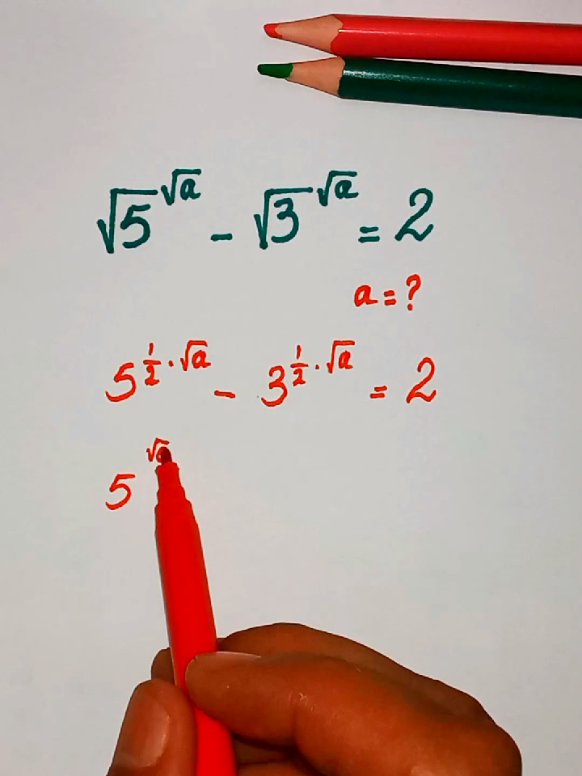 √5^√a - √3^√a = 2
a = ?
5^(1/2 · √a) - 3^(1/2 · √a) = 2
5^√